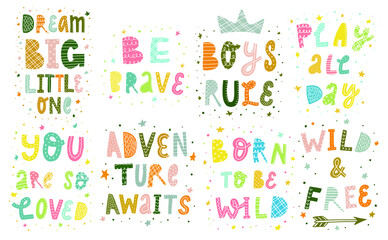 DREAM
BIG
LITTLE
ONE
BE
BRAVE
BOYS
RULE
PLAY
ALL
DAY
YOU
ARE SO
LOVED
ADVEN
TURE
AWAITS
BORN
TO BE
WILD
WILD
&
FREE